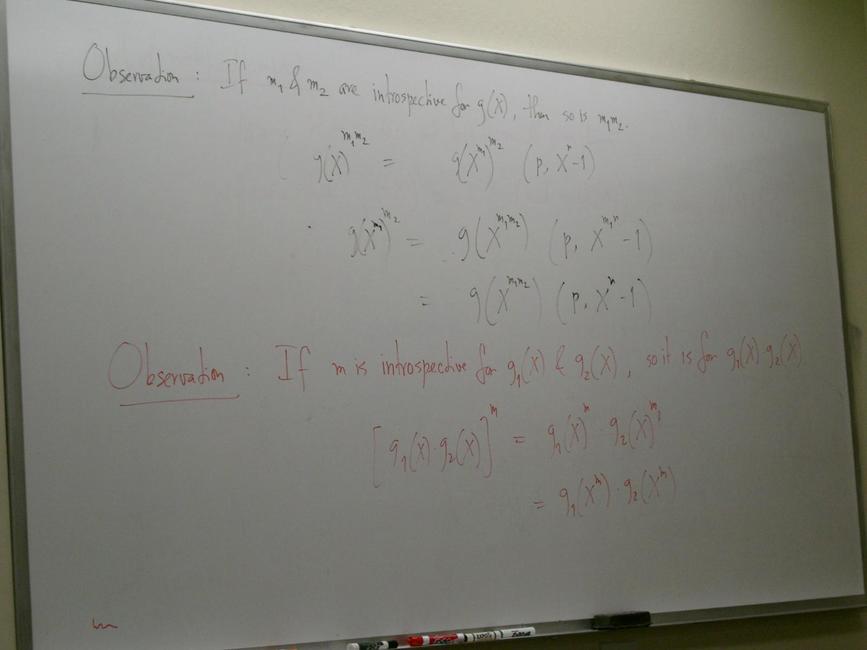 Observation : If m₁ & m₂ are introspective for g(X), then so is m₁m₂.
g(X)^{m₁m₂} = g(X^{m₁})^{m₂} (p, X^n-1)
g(X^{m₁})^{m₂} = g(X^{m₁m₂}) (p, X^{m₁n}-1)
= g(X^{m₁m₂}) (p, X^n-1)
Observation : If m is introspective for g₁(X) & g₂(X), so it is for g₁(X) g₂(X)
[g₁(X)·g₂(X)]^m = g₁(X)^m · g₂(X)^m
= g₁(X^m)·g₂(X^m)